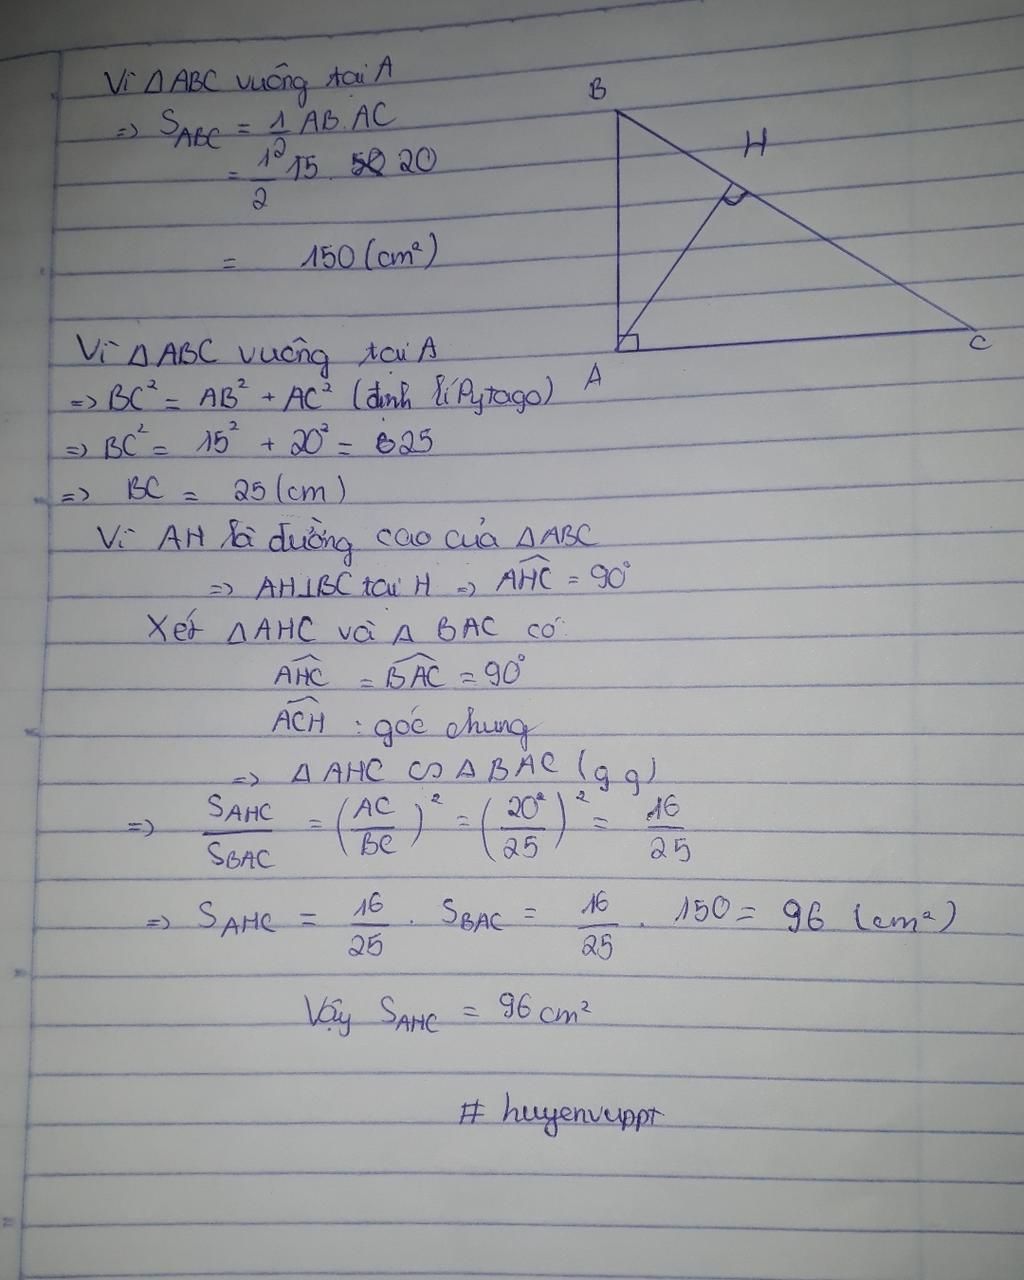 Vì △ABC vuông tại A
=> S_ABC = 1/2 AB.AC
= 1/2 15 . 20
= 150 (cm²)
B
H
A
C
Vì △ABC vuông tại A
=> BC² = AB² + AC² (định lí Pytago)
=> BC² = 15² + 20² = 625
=> BC = 25 (cm)
Vì AH là đường cao của △ABC
=> AH⊥BC tại H => \widehat{AHC} = 90°
Xét △AHC và △ BAC có:
\widehat{AHC} = \widehat{BAC} = 90°
\widehat{ACH} : góc chung
=> △AHC ∽ △BAC (g g)
=> S_AHC/S_BAC = (AC/BC)² = (20²/25)² = 16/25
=> S_AHC = 16/25 . S_BAC = 16/25 . 150 = 96 (cm²)
Vậy S_AHC = 96 cm²
# huyenvuppt